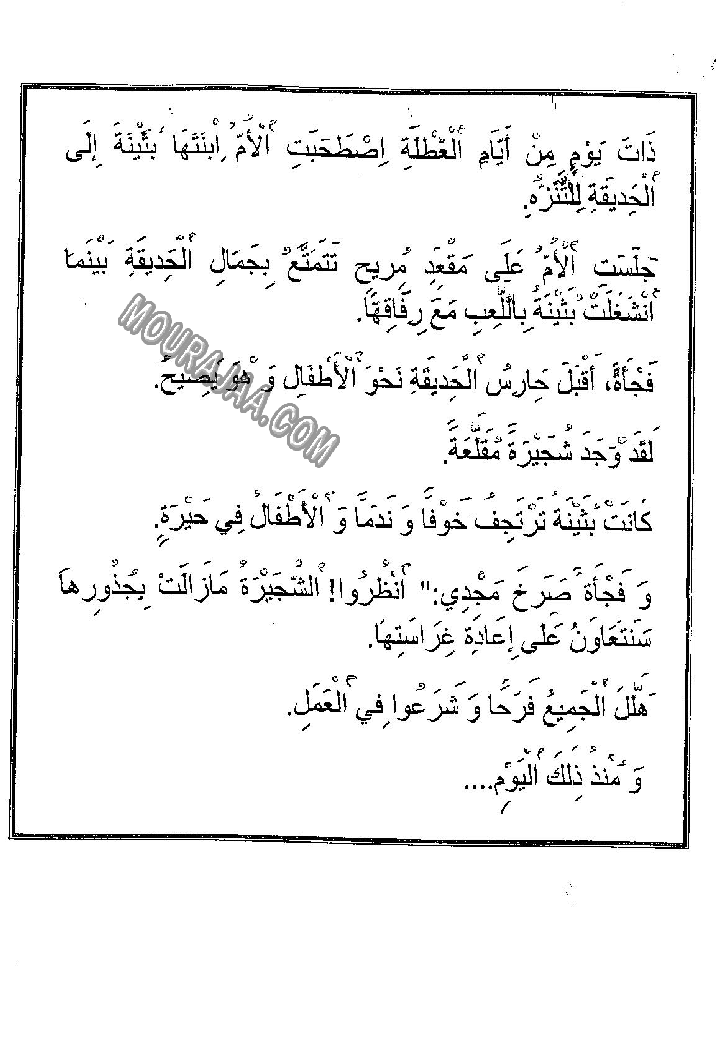 ذَاتَ يَوْمٍ مِنْ أَيَّامِ اَلْعُطْلَةِ اِصْطَحَبَتِ اَلْأُمُّ اِبْنَتَهَا بُثَيْنَةَ إِلَى
اَلْحَدِيقَةِ لِلتَّنَزُّهِ.
جَلَسَتِ اَلْأُمُّ عَلَى مَقْعَدٍ مُرِيحٍ تَتَمَتَّعُ بِجَمَالِ اَلْحَدِيقَةِ بَيْنَمَا
اَنْشَغَلَتْ بُثَيْنَةُ بِاللَّعِبِ مَعَ رِفَاقِهَا.
فَجْأَةً، أَقْبَلَ حَارِسُ اَلْحَدِيقَةِ نَحْوَ اَلْأَطْفَالِ وَ هُوَ يَصِيحُ.
لَقَدْ وَجَدَ شُجَيْرَةً مُقَلَّعَةً.
كَانَتْ بُثَيْنَةُ تَرْتَجِفُ خَوْفًا وَ نَدَمًا وَ اَلْأَطْفَالُ فِي حَيْرَةٍ.
وَ فَجْأَةً صَرَخَ مَجْدِي:" اُنْظُرُوا! اَلشُّجَيْرَةُ مَازَالَتْ بِجُذُورِهَا
سَنَتَعَاوَنُ عَلَى إِعَادَةِ غِرَاسَتِهَا.
هَلَّلَ اَلْجَمِيعُ فَرَحًا وَ شَرَعُوا فِي اَلْعَمَلِ.
وَ مُنْذُ ذَلِكَ اَلْيَوْمِ....
MOURAJAA.COM